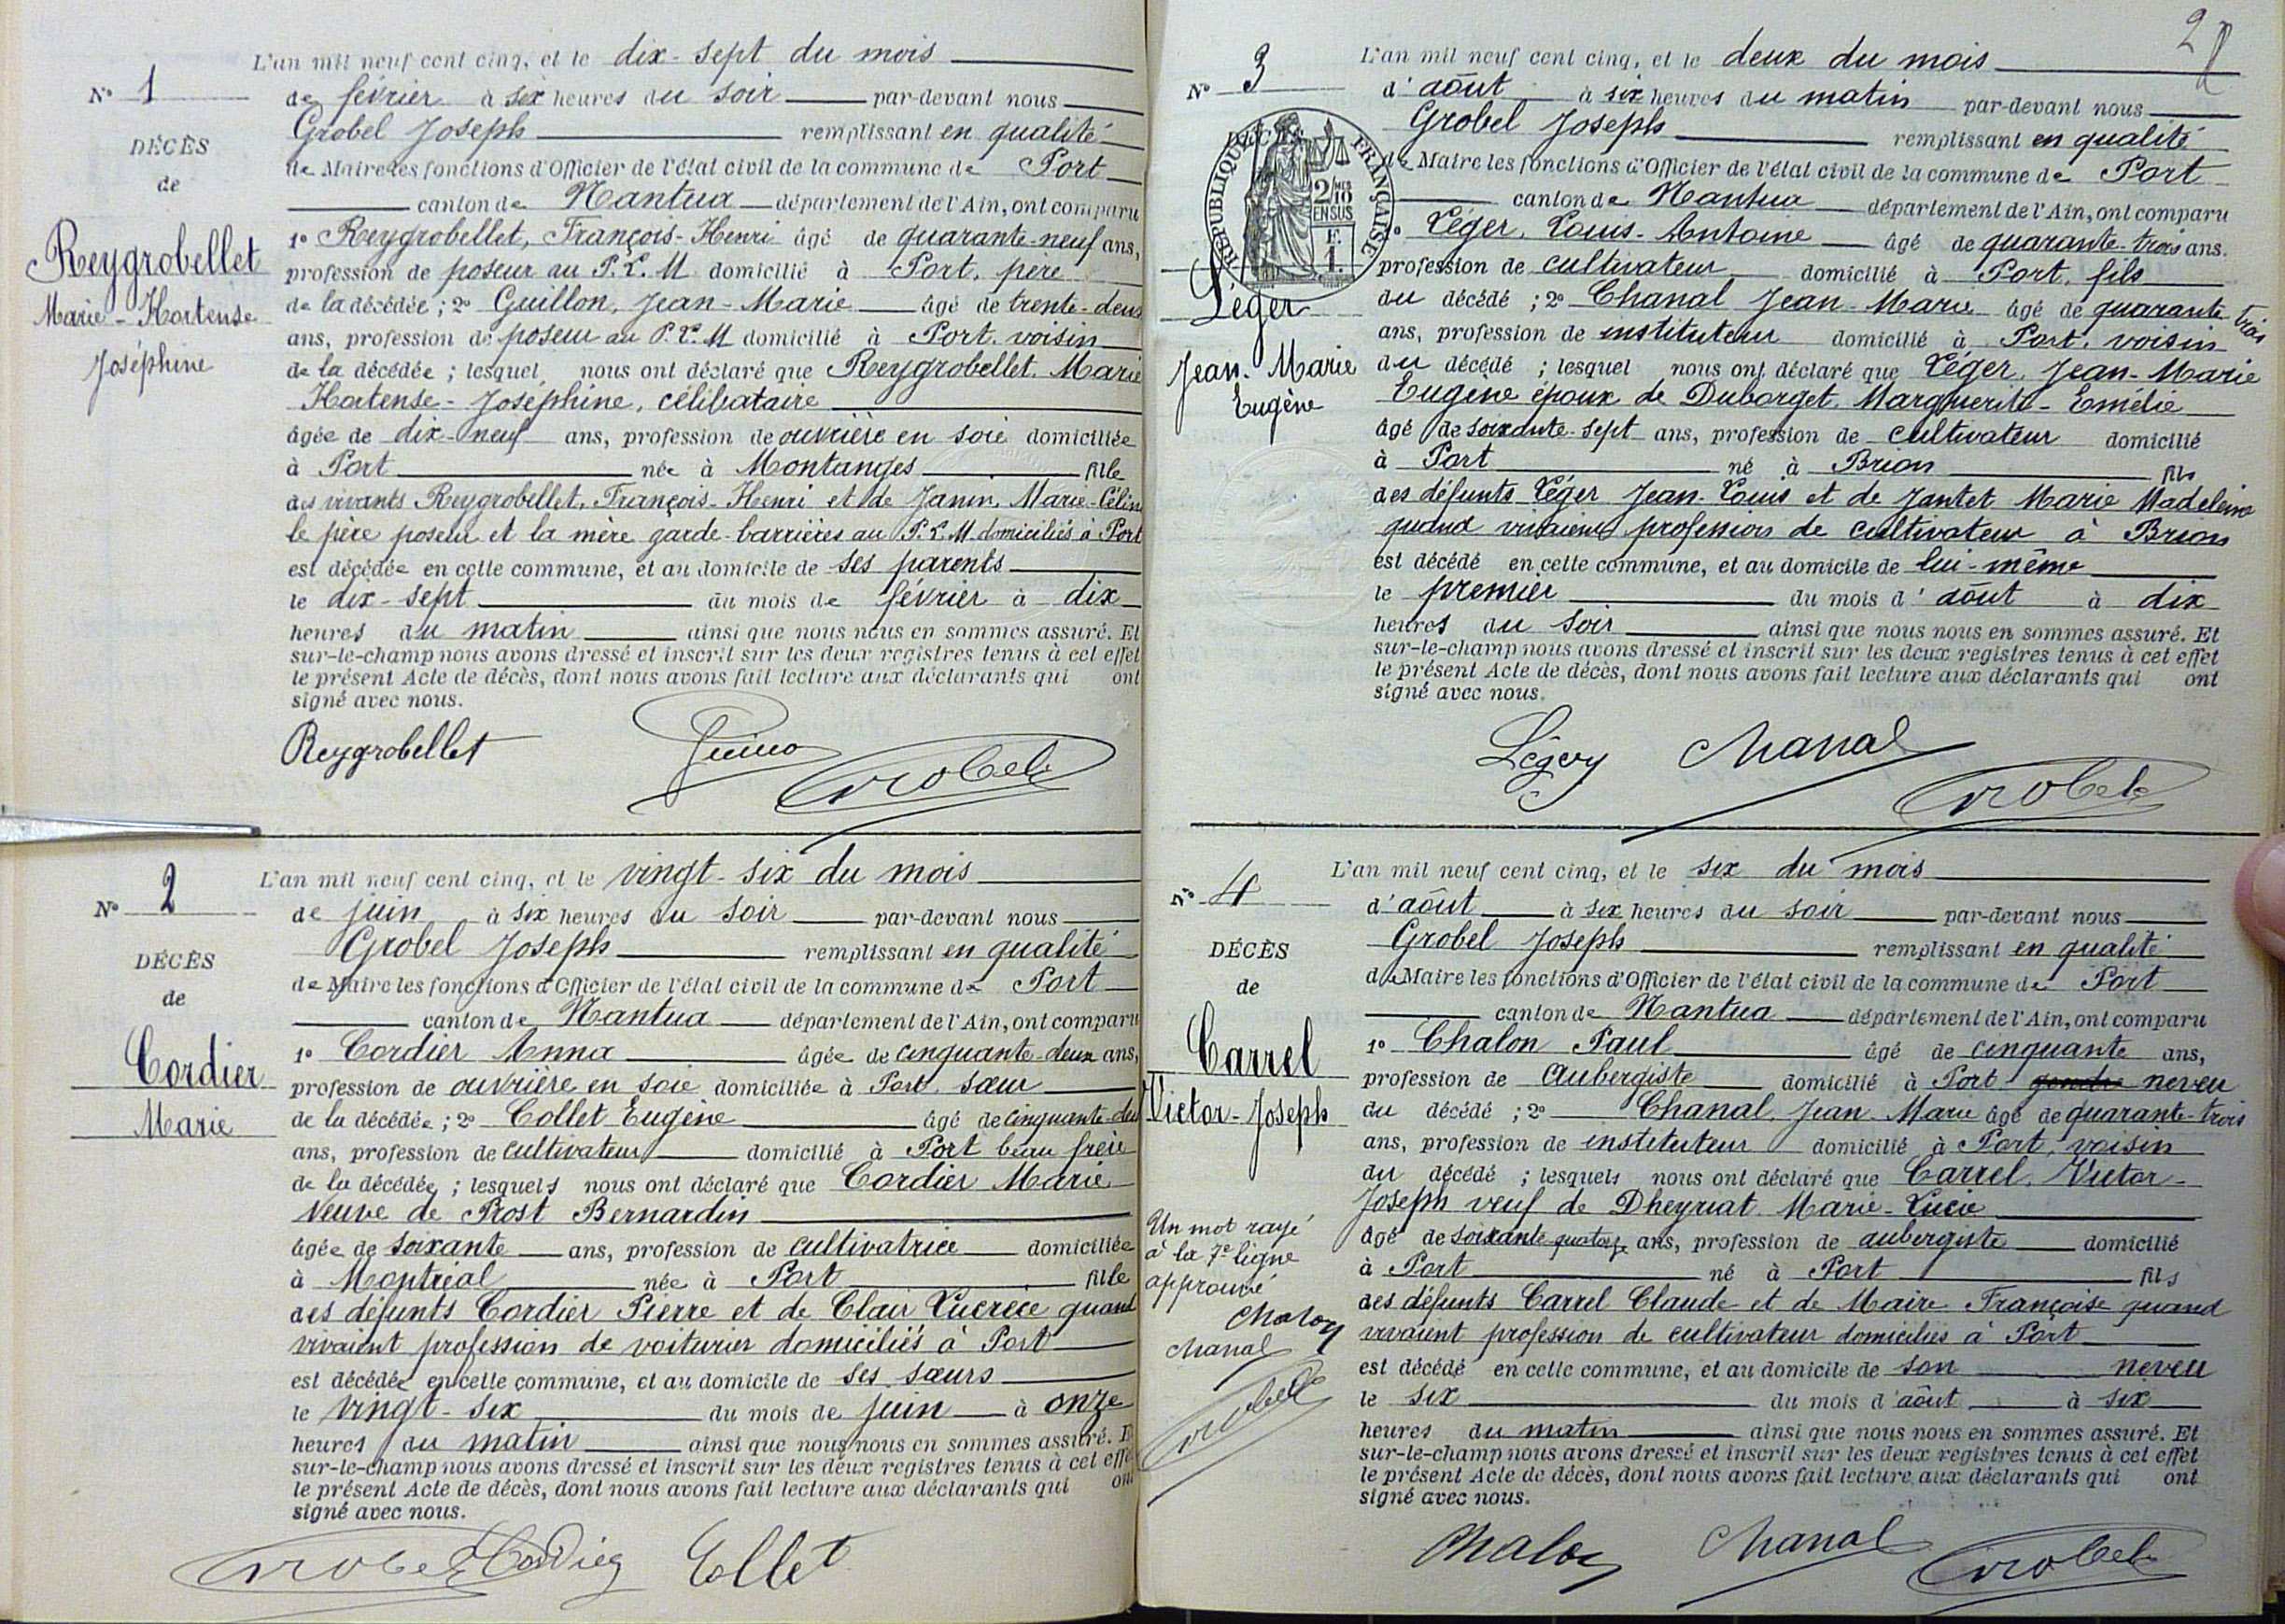 L'an mil neuf cent cinq, et le dix-sept du mois
N° 1
de février à six heures du soir par-devant nous
Grobel Joseph remplissant en qualité
DÉCÈS
de Maire les fonctions d'Officier de l'état civil de la commune de Port
de
canton de Nantua département de l'Ain, ont comparu
1° Reygrobellet, François-Henri âgé de quarante-neuf ans,
Reygrobellet
profession de poseur au P. L. M domicilié à Port, père
Marie-Hortense
de la décédée ; 2° Guillon, Jean-Marie âgé de trente-deux
ans, profession de poseur au P. L. M domicilié à Port, voisin
Joséphine
de la décédée ; lesquel nous ont déclaré que Reygrobellet, Marie
Hortense-Joséphine, célibataire
âgée de dix-neuf ans, profession de ouvrière en soie domiciliée
à Port née à Montanges fille
des vivants Reygrobellet, François-Henri et de Janin, Marie-Célin
le père poseur et la mère garde-barrières au P. L. M domiciliés à Port
est décédée en cette commune, et au domicile de ses parents
le dix-sept du mois de février à dix
heures du matin ainsi que nous nous en sommes assuré. Et
sur-le-champ nous avons dressé et inscrit sur les deux registres tenus à cet effet
le présent Acte de décès, dont nous avons fait lecture aux déclarants qui ont
signé avec nous.
Reygrobellet Grobel
L'an mil neuf cent cinq, et le vingt-six du mois
N° 2
de juin à six heures du soir par-devant nous
Grobel Joseph remplissant en qualité
DÉCÈS
de Maire les fonctions d'Officier de l'état civil de la commune de Port
de
canton de Nantua département de l'Ain, ont comparu
1° Cordier Anna âgée de cinquante-deux ans,
Cordier
profession de ouvrière en soie domiciliée à Port, sœur
Marie
de la décédée ; 2° Collet Eugène âgé de cinquante-deu
ans, profession de cultivateur domicilié à Port beau frère
de la décédée ; lesquels nous ont déclaré que Cordier Marie
Veuve de Prost Bernardin
âgée de soixante ans, profession de cultivatrice domiciliée
à Montréal née à Port fille
des défunts Cordier Pierre et de Clair Lucrèce quand
vivaient profession de voiturier domiciliés à Port
est décédée en cette commune, et au domicile de ses sœurs
le vingt-six du mois de juin à onze
heures du matin ainsi que nous nous en sommes assuré. E
sur-le-champ nous avons dressé et inscrit sur les deux registres tenus à cet effe
le présent Acte de décès, dont nous avons fait lecture aux déclarants qui ont
signé avec nous.
Grobel Cordier Collet
2
L'an mil neuf cent cinq, et le deux du mois
N° 3
d'août à six heures du matin par-devant nous
Grobel Joseph remplissant en qualité
RÉPUBLIQUE FRANÇAISE
DÉC
2/10 MES
EN SUS
F.
1.
de Maire les fonctions d'Officier de l'état civil de la commune de Port
canton de Nantua département de l'Ain, ont comparu
1° Léger, Louis-Antoine âgé de quarante-trois ans.
profession de cultivateur domicilié à Port, fils
Léger
du décédé ; 2° Chanal Jean-Marie âgé de quarante trois
ans, profession de instituteur domicilié à Port, voisin
Jean-Marie
du décédé ; lesquel nous ont déclaré que Léger, Jean-Marie
Eugène
Eugène époux de Duborget, Marguerite-Emélie
âgé de soixante-sept ans, profession de cultivateur domicilié
à Port né à Brion fils
des défunts Léger Jean-Louis et de Jantet Marie Madeleine
quand vivaient profession de cultivateur à Brion
est décédé en cette commune, et au domicile de lui-même
le premier du mois d'août à dix
heures du soir ainsi que nous nous en sommes assuré. Et
sur-le-champ nous avons dressé et inscrit sur les deux registres tenus à cet effet
le présent Acte de décès, dont nous avons fait lecture aux déclarants qui ont
signé avec nous.
Léger Chanal Grobel
L'an mil neuf cent cinq, et le six du mois
N° 4
d'août à six heures du soir par-devant nous
Grobel Joseph remplissant en qualité
DÉCÈS
de Maire les fonctions d'Officier de l'état civil de la commune de Port
de
canton de Nantua département de l'Ain, ont comparu
1° Chalon Paul âgé de cinquante ans,
Carrel
profession de aubergiste domicilié à Port gendre neveu
Victor-Joseph
du décédé ; 2° Chanal, Jean Marie âgé de quarante-trois
ans, profession de instituteur domicilié à Port, voisin
du décédé ; lesquels nous ont déclaré que Carrel, Victor-
Joseph veuf de Dheyriat Marie-Lucie
âgé de soixante quatorze ans, profession de aubergiste domicilié
à Port né à Port fils
des défunts Carrel Claude et de Maire Françoise quand
vivaient profession de cultivateur domiciliés à Port
est décédé en cette commune, et au domicile de son neveu
le six du mois d'août à six
heures du matin ainsi que nous nous en sommes assuré. Et
sur-le-champ nous avons dressé et inscrit sur les deux registres tenus à cet effet
le présent Acte de décès, dont nous avons fait lecture aux déclarants qui ont
signé avec nous.
Un mot rayé
à la 7e ligne
approuvé
Chalon
Chanal
Grobel
Chalon Chanal Grobel